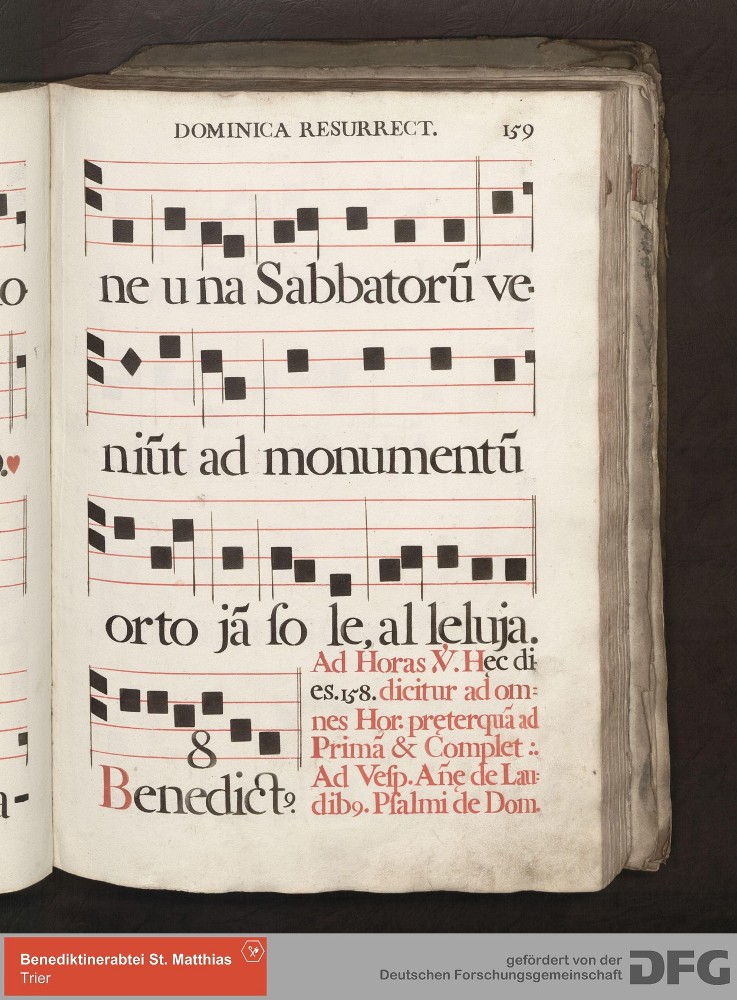 DOMINICA RESURRECT. 159
ne una Sabbatorũ ve-
niũt ad monumentũ
orto jã ſole, alleluja.
Ad Horas ℣. Hęc di-
es. 158. dicitur ad om=
nes Hor. pręterquã ad
Primã & Complet :.
Ad Veſp. Añę de Lau=
dibꝰ. Pſalmi de Dom.
8
Benedictꝰ
Benediktinerabtei St. Matthias
Trier
gefördert von der
Deutschen Forschungsgemeinschaft
DFG